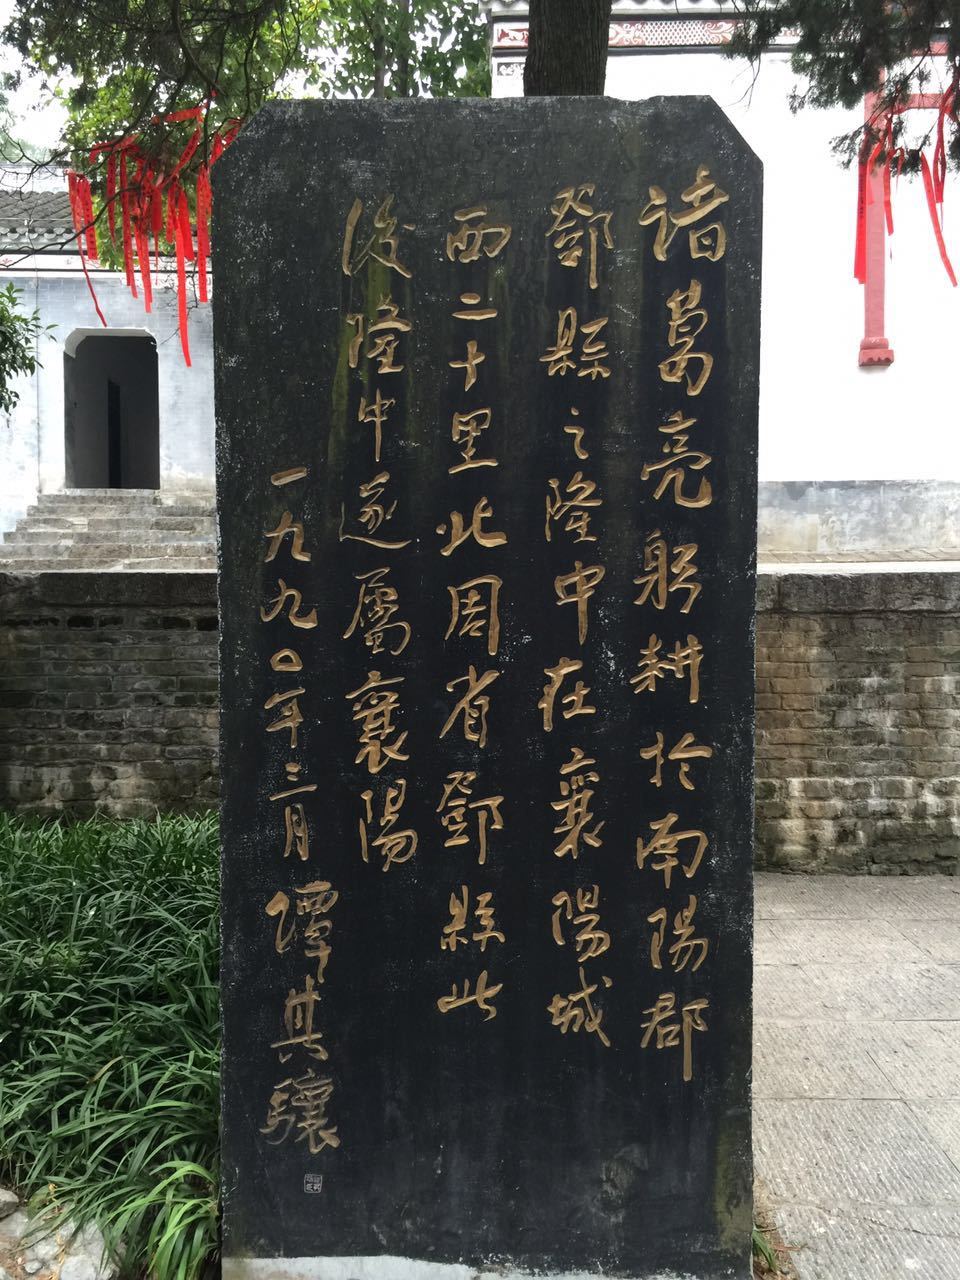 諸葛亮躬耕於南陽郡
鄧縣之隆中在襄陽城
西二十里北周省鄧縣此
後隆中遂屬襄陽
一九九〇年三月譚其驤